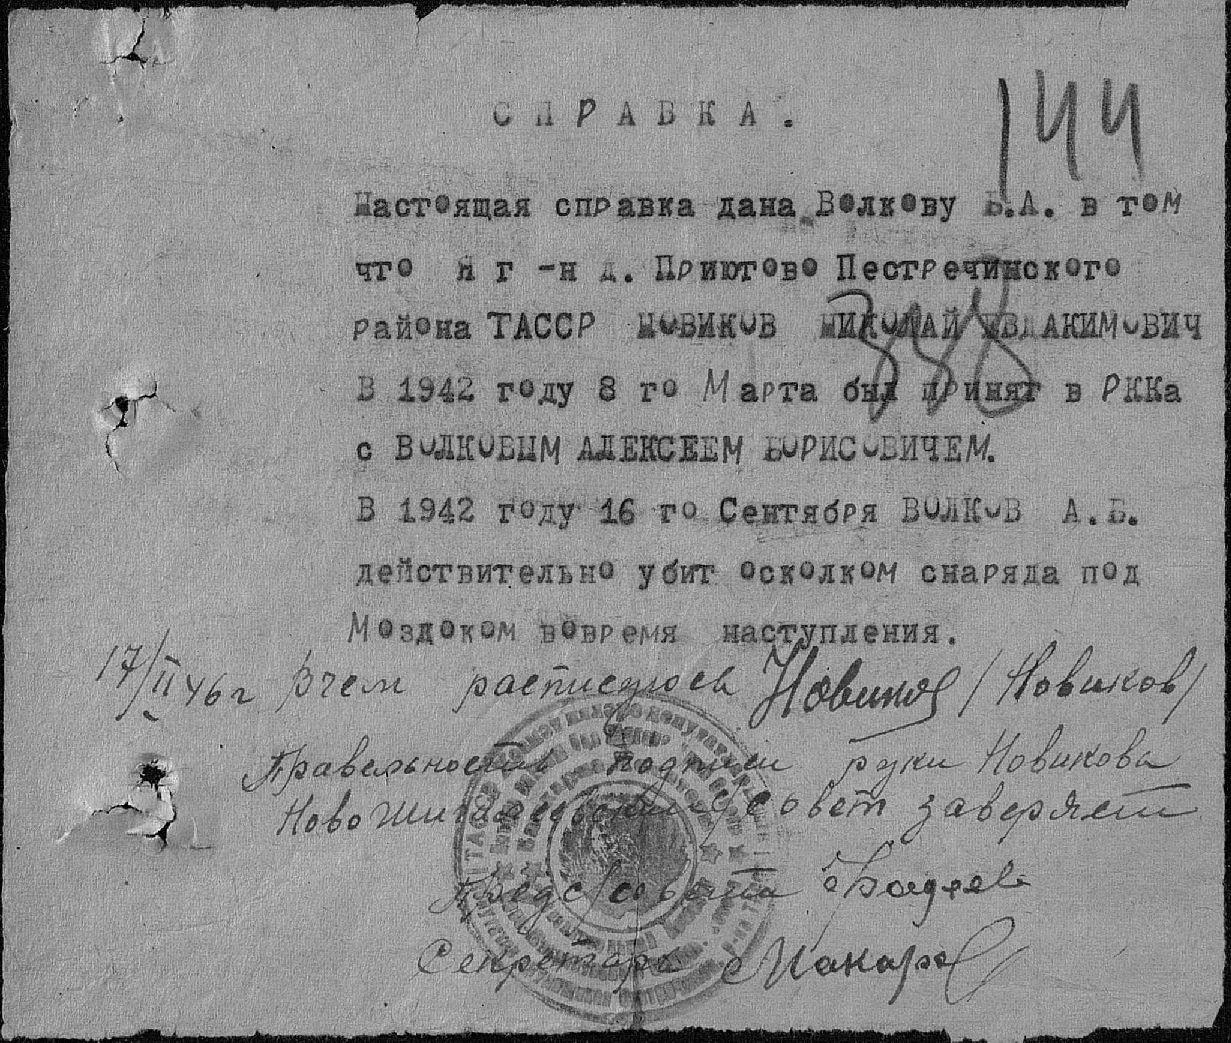 144
СПРАВКА.
Настоящая справка дана Волкову Б.А. в том
что я г-н д. Приютово Пестречинского
района ТАССР НОВИКОВ НИКОЛАЙ ЕВДАКИМОВИЧ
В 1942 году 8 го Марта был принят в РККа
с ВОЛКОВЫМ АЛЕКСЕЕМ БОРИСОВИЧЕМ.
В 1942 году 16 го Сентября ВОЛКОВ А.Б.
действительно убит осколком снаряда под
Моздоком вовремя наступления.
17/II 46 г Вчем расписуюсь Новиков /Новиков/
Правельность подписи руки Новикова
Ново совет заверяет
Пред с/совета
Секретарь Макаро